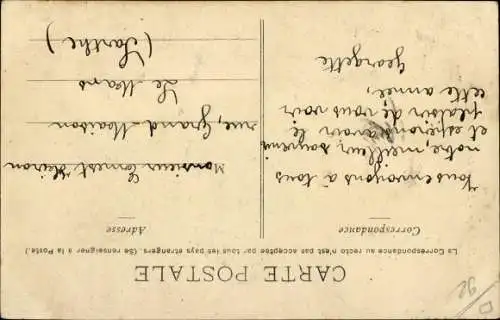 CARTE POSTALE
La Correspondance au recto n'est pas acceptée par tous les pays étrangers. (Se renseigner à la Poste.)
Correspondance
Nous envoyons à tous
notre, meilleur, souvenir
et espérons avoir le
plaisir de vous voir
cette année,
Georgette
Adresse
Monsieur Ernest
rue, Grand-Maison
Le Mans
(Sarthe)
D
92